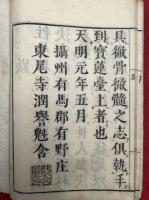 具徹骨徹髓之志俱執手
到寶蓮臺上者也
天明元年五月
攝州有馬郡有野庄
東尾寺潤譽魁含